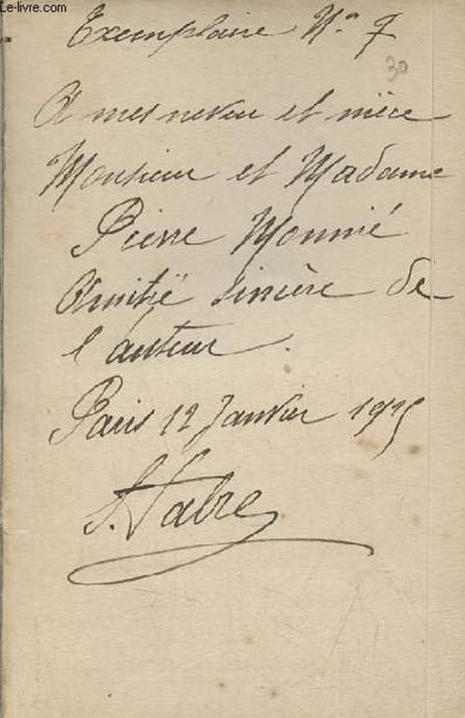 Le-livre.com
Exemplaire N° 7
30
A mes neveu et nièce
Monsieur et Madame
Pierre Monnié
Amitié sincère de
l'auteur.
Paris 12 Janvier 1925
Fabre